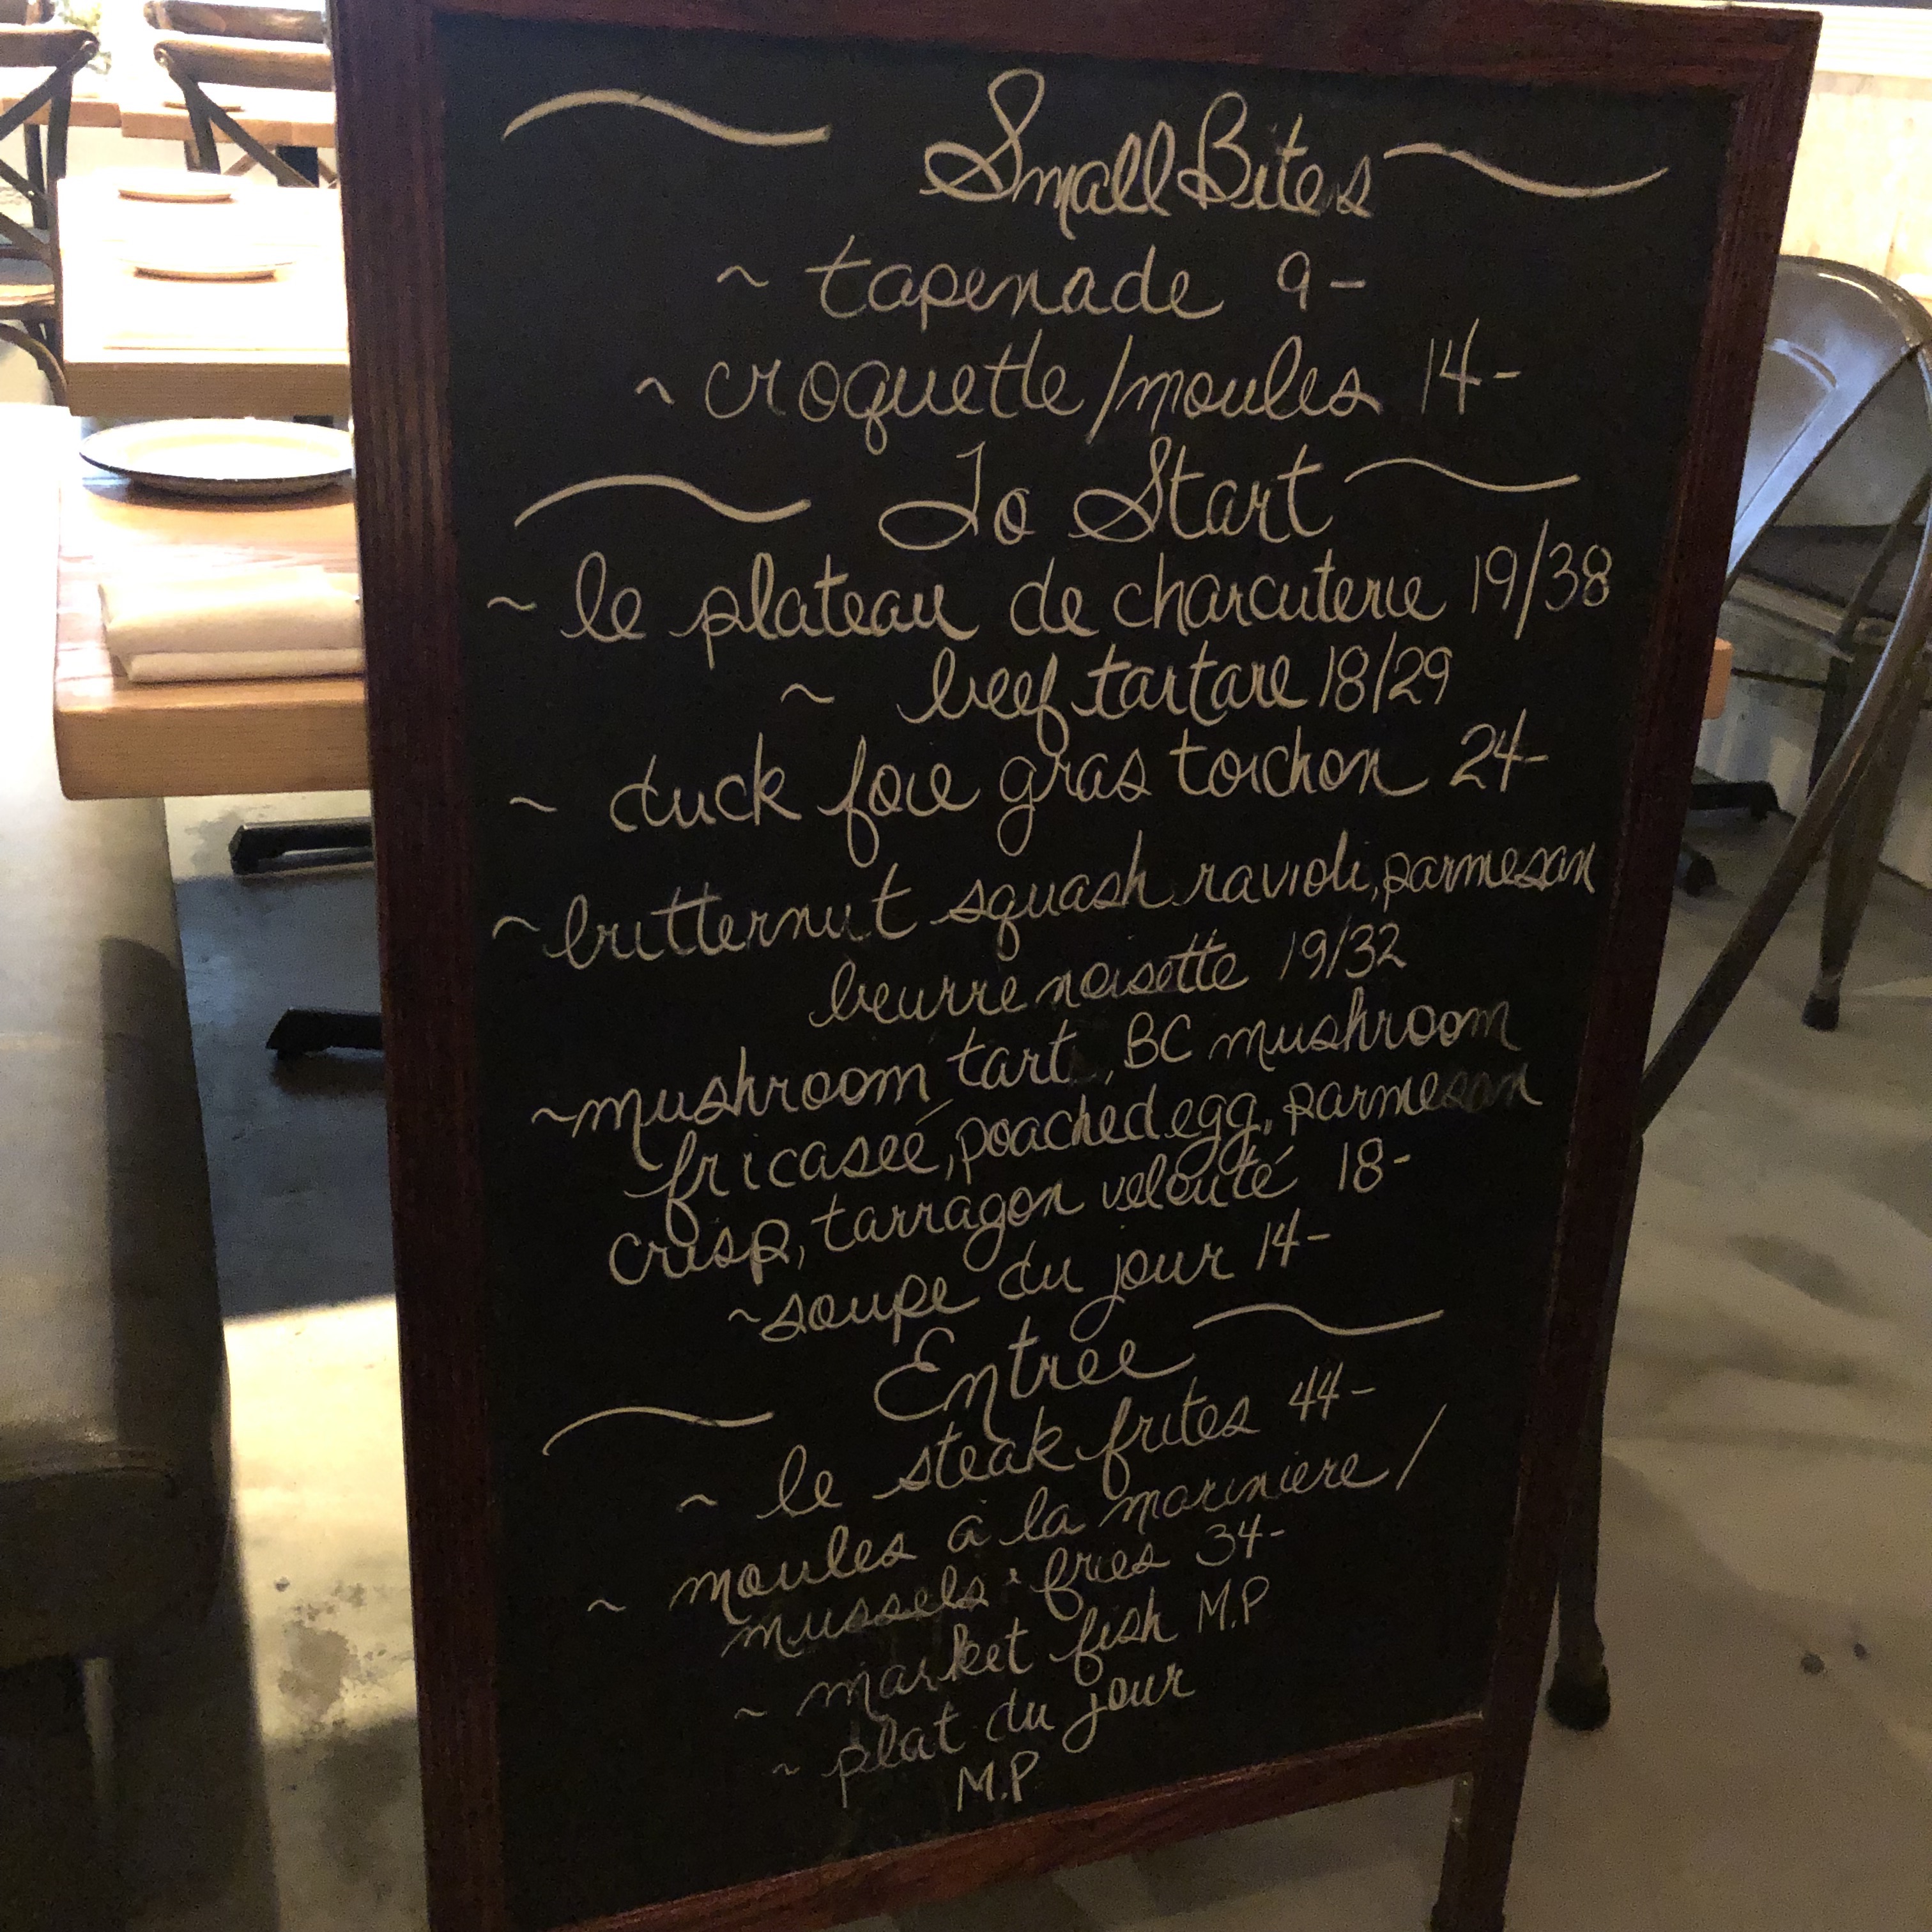 Small Bites
~ tapenade 9-
~ croquette/moules 14-
To Start
~ le plateau de charcuterie 19/38
~ beef tartare 18/29
~ duck foie gras torchon 24-
~ butternut squash ravioli, parmesan
beurre noisette 19/32
~ mushroom tart, BC mushroom
fricaseé, poached egg, parmesan
crisp, tarragon velouté 18-
~ soupe du jour 14-
Entree
~ le steak frites 44-
~ moules à la mariniere /
mussels & fries 34-
~ market fish M.P
~ plat du jour
M.P